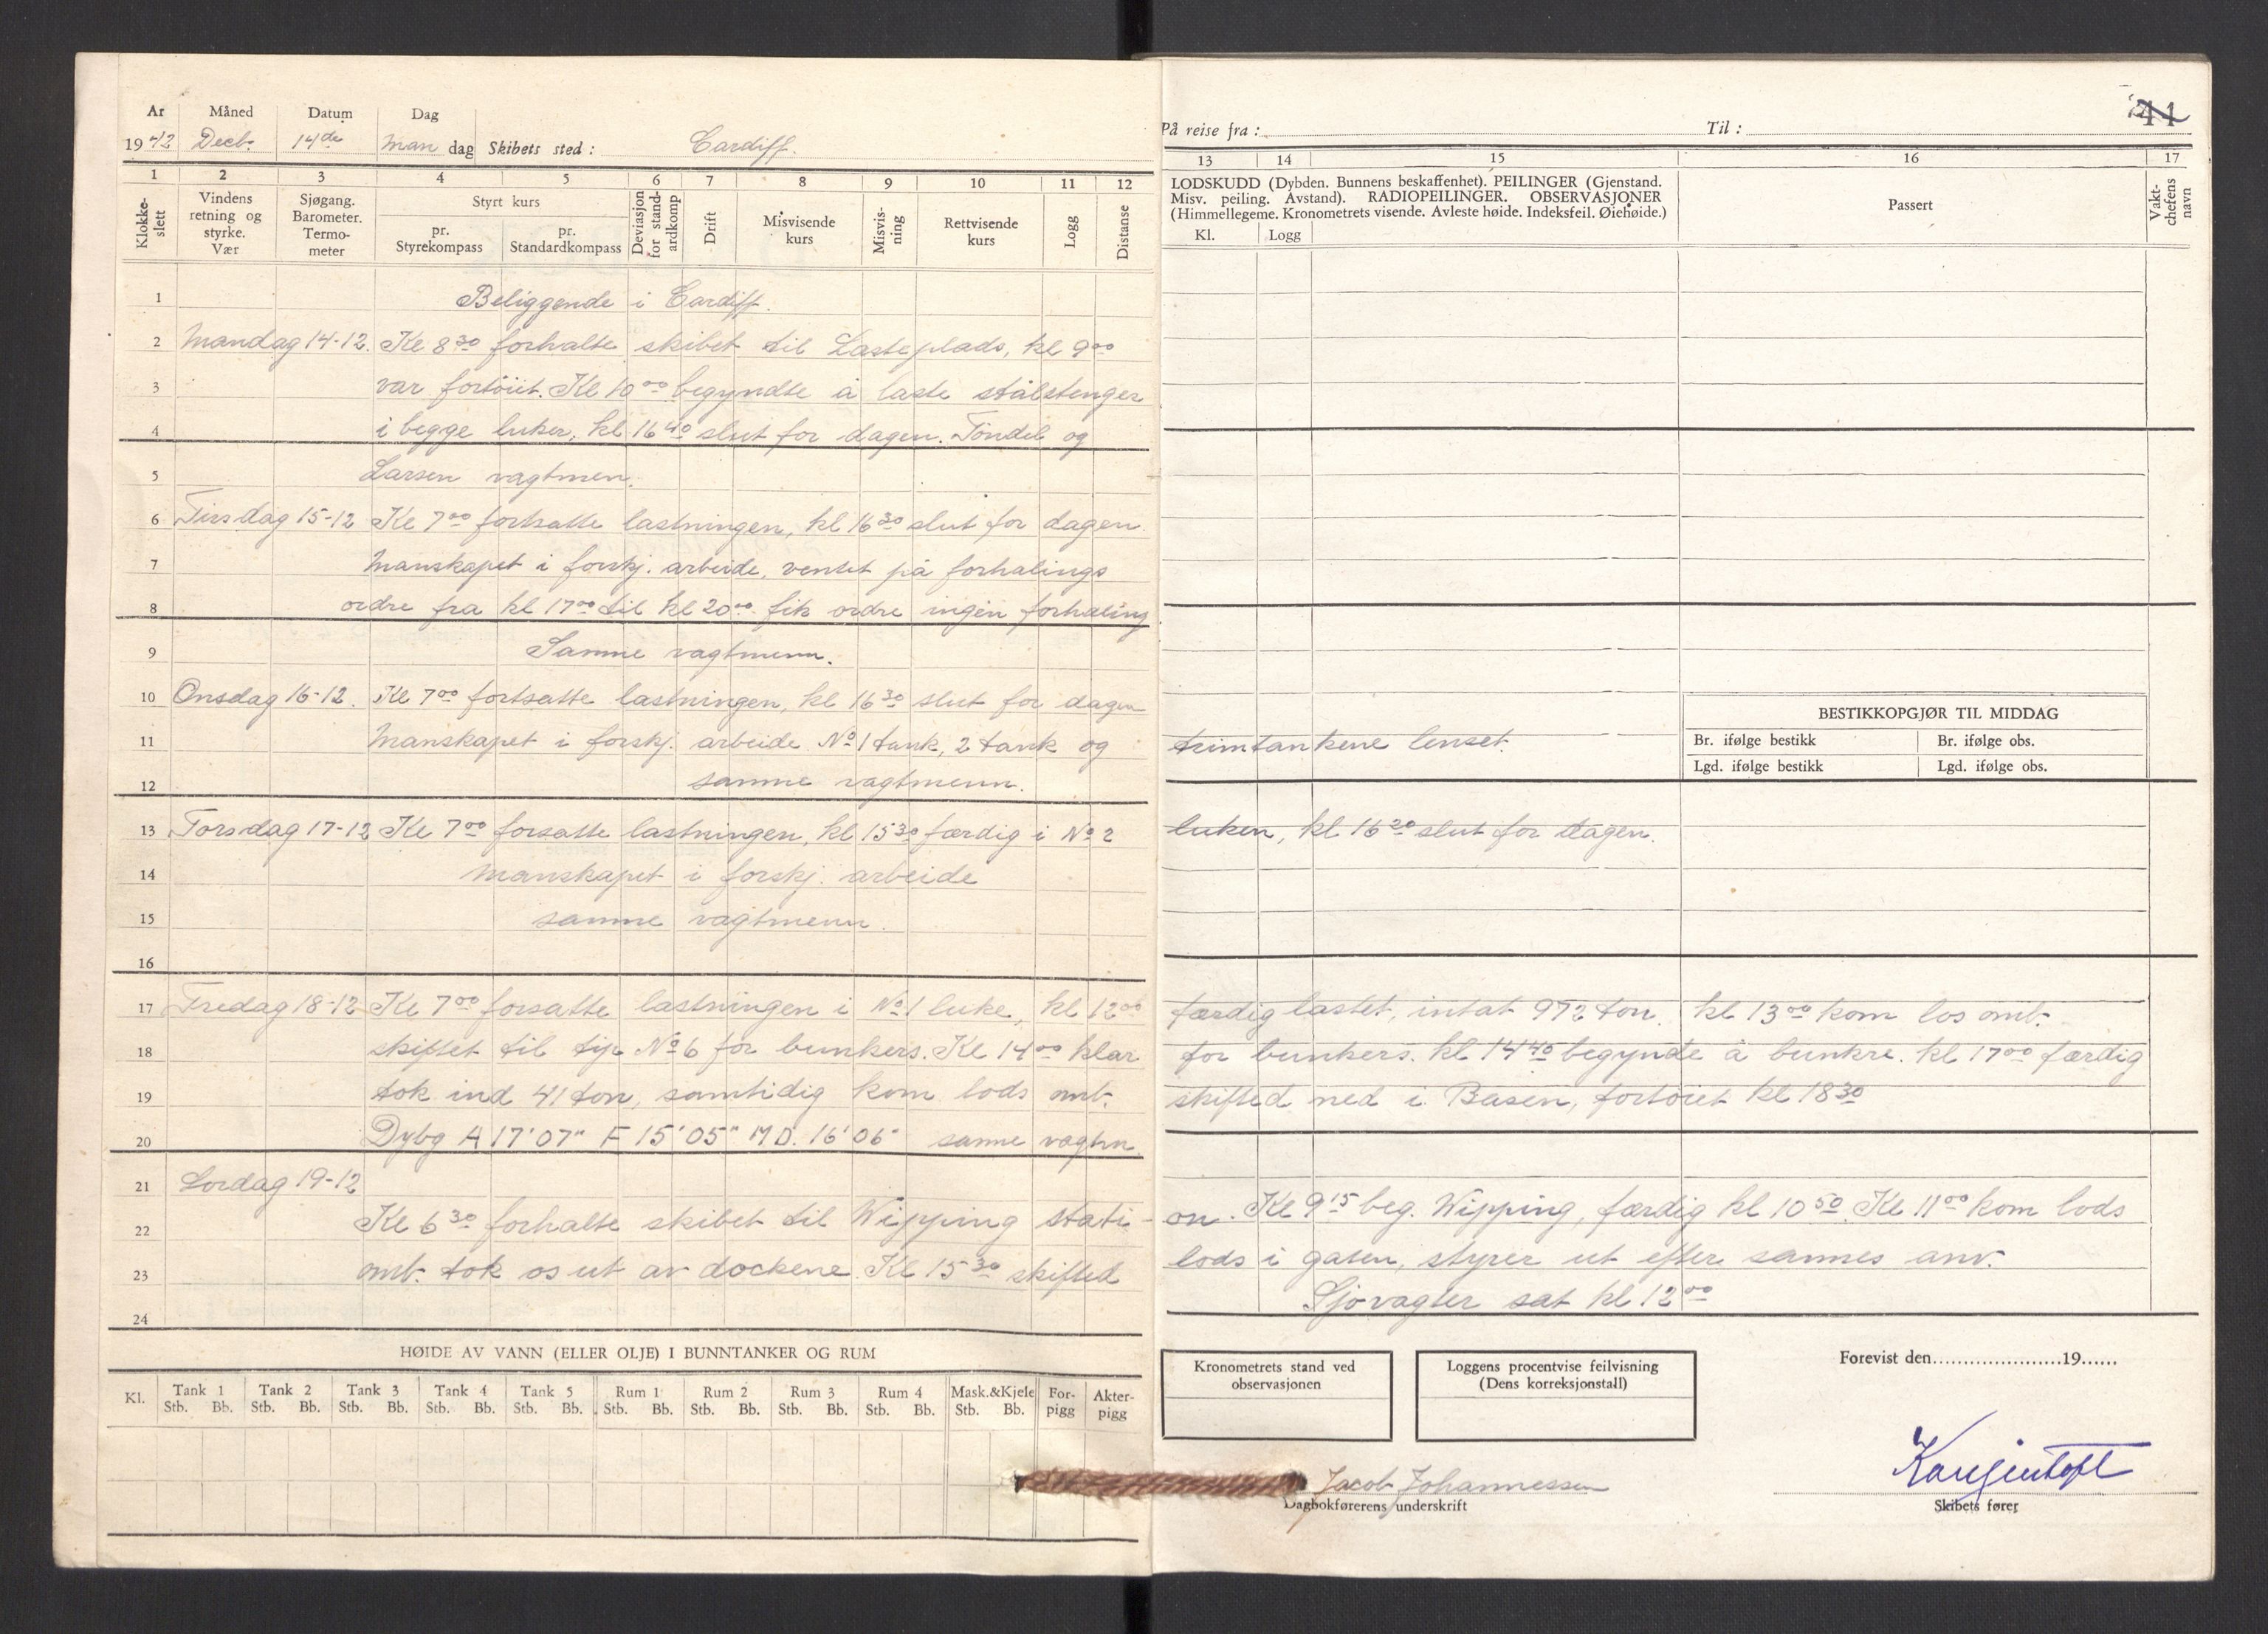 År Måned Datum Dag
1942 Decb. 14de Man dag Skibets sted: Cardiff.
1 2 3 4 5 6 7 8 9 10 11 12
Klokke-slett
Vindens retning og styrke. Vær
Sjøgang. Barometer. Termo-meter
Styrt kurs
pr. Styrekompass
pr. Standardkompass
Deviasjon for stand-ardkomp
Drift
Misvisende kurs
Misvis-ning
Rettvisende kurs
Logg
Distanse
1 Beliggende i Cardiff.
2 Mandag 14-12. Kl 8 30 forhalte skibet til Lasteplads, kl 9 00
3 var fortöiet. Kl 10 00 begyndte å laste stålstenger
4 i begge luker, kl 16 40 slut for dagen. Töndel og
5 Larsen vagtmen.
6 Tirsdag 15-12 Kl 7 00 fortsatte lastningen, kl 16 30 slut for dagen.
7 Manskapet i forskj. arbeide, ventet på forhalings
8 ordre fra kl 17 00 til kl 20 00 fik ordre ingen forhaling
9 Samme vagtmenn.
10 Onsdag 16-12. Kl 7 00 fortsatte lastningen, kl 16 30 slut for dagen
11 Manskapet i forskj. arbeide No 1 tank, 2 tank og
12 samme vagtmenn.
13 Torsdag 17-12 Kl 7 00 forsatte lastningen, kl 15 30 færdig i No 2
14 Manskapet i forskj. arbeide
15 samme vagtmenn.
16
17 Fredag 18-12 Kl 7 00 forsatte lastningen i No 1 luke, kl 12 00
18 skiftet til tip No 6 for bunkers. Kl 14 00 klar
19 tok ind 41 ton, samtidig kom lods omb.
20 Dybg A 17'07" F 15'05" MD. 16'06" samme vagtm.
21 Lordag 19-12
22 Kl 6 30 forhalte skibet til Wipping stati-
23 omb. tok os ut av dockene. Kl 15 30 skifted
24
HØIDE AV VANN (ELLER OLJE) I BUNNTANKER OG RUM
Kl. Tank 1 Tank 2 Tank 3 Tank 4 Tank 5 Rum 1 Rum 2 Rum 3 Rum 4 Mask.&Kjele For-pigg Akter-pigg
Stb. Bb. Stb. Bb. Stb. Bb. Stb. Bb. Stb. Bb. Stb. Bb. Stb. Bb. Stb. Bb. Stb. Bb. Stb. Bb.
41
På reise fra: Til:
13 14 15 16 17
LODSKUDD (Dybden. Bunnens beskaffenhet). PEILINGER (Gjenstand.
Misv. peiling. Avstand). RADIOPEILINGER. OBSERVASJONER
(Himmellegeme. Kronometrets visende. Avleste høide. Indeksfeil. Øiehøide.)
Kl. Logg
Passert
Vakt-chefens navn
BESTIKKOPGJØR TIL MIDDAG
Br. ifølge bestikk Br. ifølge obs.
Lgd. ifølge bestikk Lgd. ifølge obs.
trimtankene lenset.
luken, kl 16 20 slut for dagen.
færdig lastet, intat 972 ton. kl 13 00 kom los omb.
for bunkers. kl 14 40 begynde å bunkre. kl 17 00 færdig
skifted ned i Basen, fortöiet kl 18 30
on. Kl 9 15 beg. Wipping, færdig kl 10 50. Kl 11 00 kom lods
lods i gaten, styrer ut efter sammes anv.
Sjövagter sat kl 12 00
Kronometrets stand ved observasjonen
Loggens procentvise feilvisning (Dens korreksjonstall)
Forevist den......................19......
Jacob Johannessen
Dagbokførerens underskrift
Skibets fører